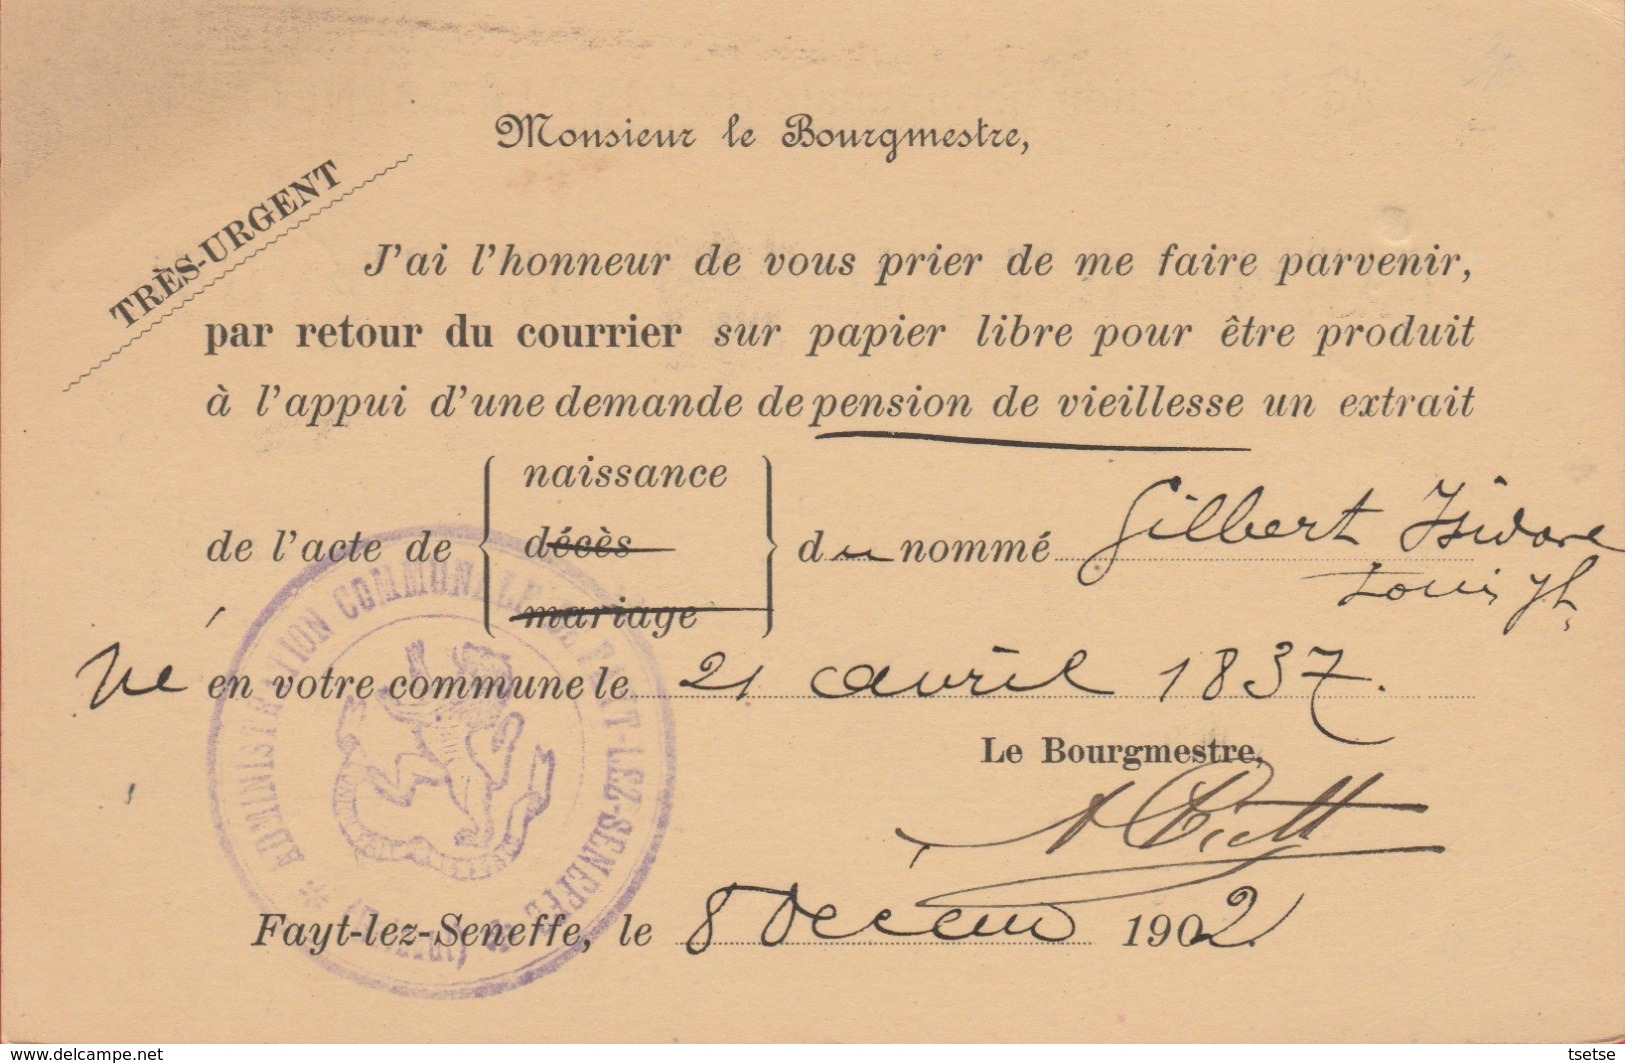 Monsieur le Bourgmestre,
TRÈS-URGENT
J'ai l'honneur de vous prier de me faire parvenir,
par retour du courrier sur papier libre pour être produit
à l'appui d'une demande de pension de vieillesse un extrait
naissance
de l'acte de décès du nommé Gilbert Isidore
mariage Louis Jh
Né en votre commune le 21 avril 1837.
Le Bourgmestre,
ADMINISTRATION COMMUNALE DE FAYT-LEZ-SENEFFE
Fayt-lez-Seneffe, le 8 Décem 1902.
www.delcampe.net
tsetse